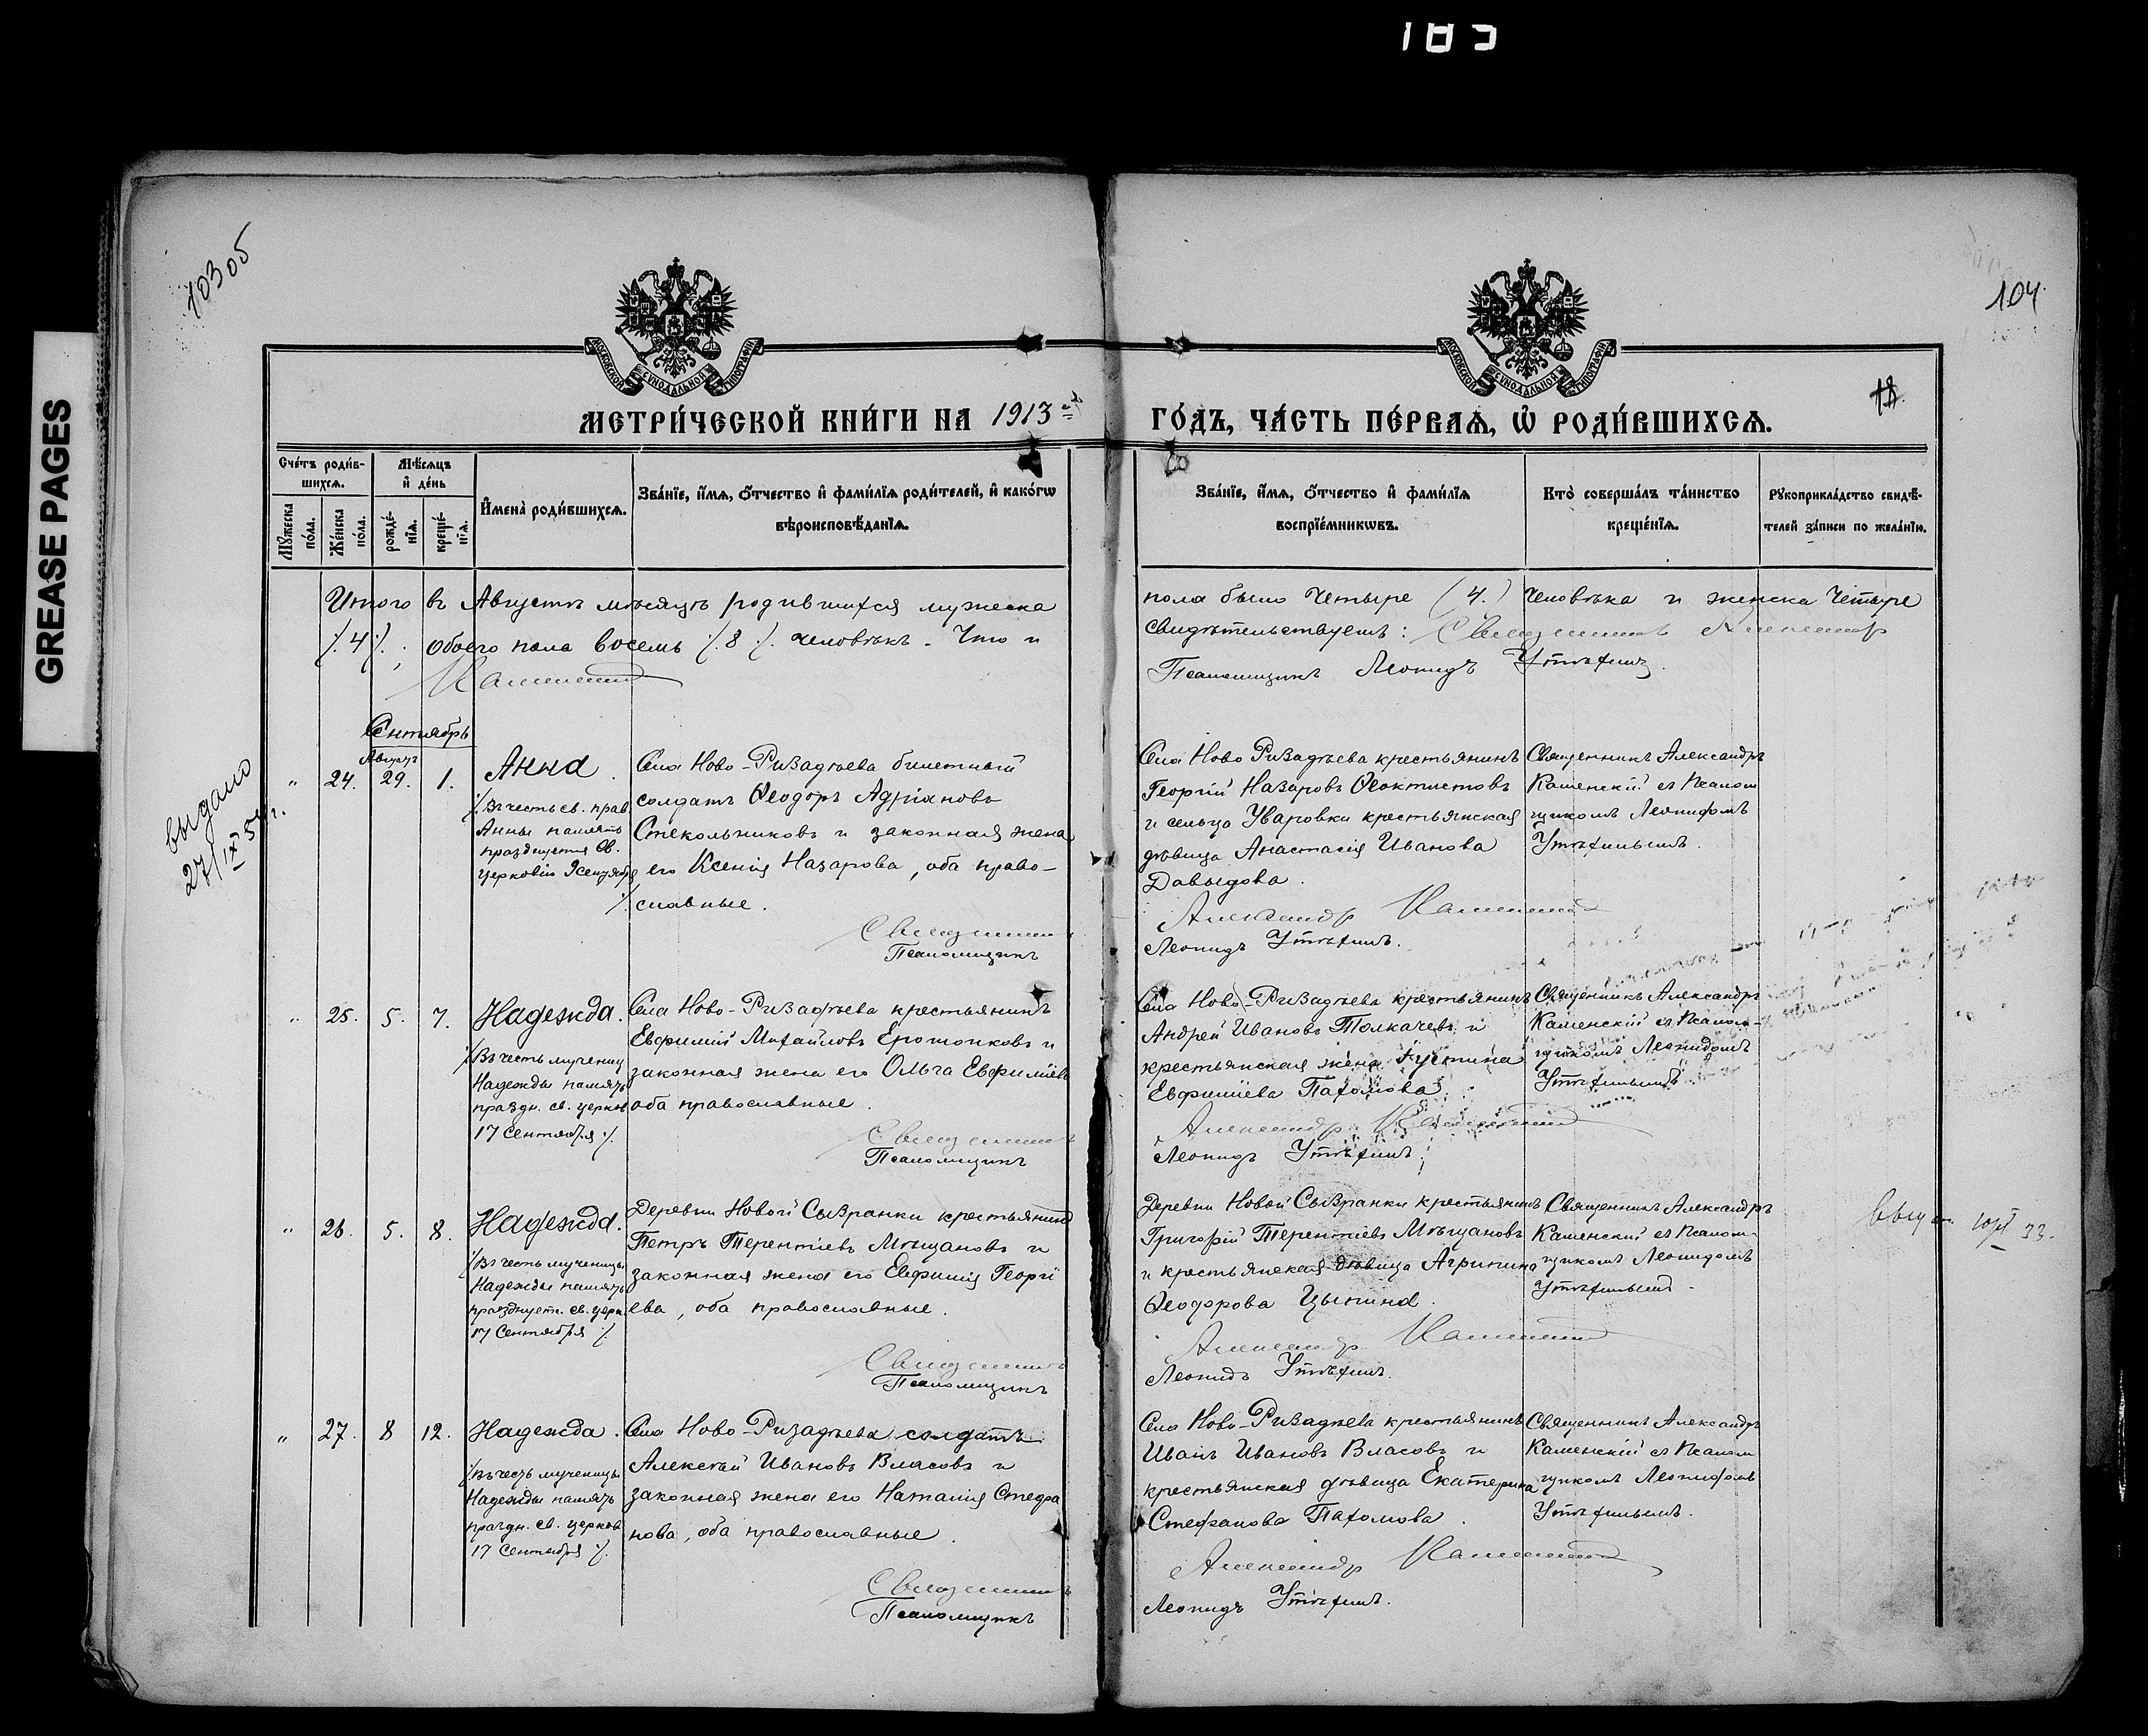 185
GREASE PAGES
10305
104.
МОСКОВСКОЙ СѴНОДАЛЬНОЙ ТИПОГРАФІИ
МОСКОВСКОЙ СѴНОДАЛЬНОЙ ТИПОГРАФІИ
МЕТРИ́ЧЕСКОЙ КНИ́ГИ НА 1913 й ГО́ДЪ, ЧА́СТЬ ПЕ́РВАѦ, Ѡ҆ РОДИ́ВШИХСѦ.
Сче́тъ роди́в-
шихсѧ.
Мѣ́сѧцъ
и҆ де́нь
Мꙋ́жеска
по́ла.
Же́нска
по́ла.
рожде́-
нїѧ.
креще́-
нїѧ.
И҆мена̀ роди́вшихсѧ.
Зва́нїе, и҆́мѧ, ѻ҆́тчество и҆ фами́лїѧ роди́телей, и҆ како́гѡ
вѣроисповѣ́данїѧ.
Зва́нїе, и҆́мѧ, ѻ҆́тчество и҆ фами́лїѧ
воспрїе́мникѡвъ.
Кто̀ соверша́лъ та́инство
креще́нїѧ.
Рꙋкоприкла́дство свидѣ́-
телей за́писи по жела́нїю.
Итого въ Августѣ мѣсяцѣ родившихся мужеска пола было четыре (4.) человѣка и женска четыре
/.4/. обоего пола восемь /.8/. человѣкъ. Что и свидѣтельствуемъ: Священникъ Александръ
Каменскій Псаломщикъ Леонидъ
Сентябрь
выдано
27/IX 57 г.
" 24. Августъ 29. 1. Анна
/.Въ честь св. прав.
Анны память
празднуется св.
церковію 9 сентября
/.
Села Ново-Ризадѣева билетный
солдатъ Ѳеодоръ Адріановъ
Стекольниковъ и законная жена
его Ксенія Назарова, оба право-
славные.
Священникъ
Псаломщикъ
Села Ново Ризадѣева крестьянинъ
Георгій Назаровъ Ѳеоктистовъ
и сельца Уваровки крестьянская
дѣвица Анастасія Иванова
Давыдова.
Александръ Каменскій
Леонидъ
Священникъ Александръ
Каменскій съ Псалом
щикомъ Леонидомъ
" 25. 5. 7. Надежда.
/.Въ честь мучениц
Надежды память
праздн. св. церков
17 Сентября /.
Села Ново-Ризадѣева крестьянинъ
Евфимій Михайловъ Еротонковъ и
законная жена его Ольга Евфиміева
оба православные.
Священникъ
Псаломщикъ
Села Ново-Ризадѣева крестьянинъ
Андрей Ивановъ Толкачевъ и
крестьянская жена Іустина
Евфиміева Пахомова.
Александръ Каменскій
Леонидъ
Священникъ Александръ
Каменскій съ Псалом-
щикомъ Леонидомъ
" 26. 5. 8. Надежда.
/.Въ честь мученицы
Надежды память
празднует. св. церк.
17 Сентября /.
Деревни Новой Сызранки крестьянинъ
Петръ Терентіевъ Мѣщановъ и
законная жена его Евфимія Георгі
ева, оба православные.
Священникъ
Псаломщикъ
Деревни Новой Сызранки крестьянинъ
Григорій Терентіевъ Мѣщановъ
и крестьянская дѣвица Агрипина
Ѳеодорова Цыпина.
Александръ Каменскій
Леонидъ
Священникъ Александръ
Каменскій съ Псалом-
щикомъ Леонидомъ
33.
" 27. 8 12. Надежда.
/.Въ честь мученицы
Надежды память
праздн. св. церков
17 Сентября /.
Села Ново-Ризадѣева солдатъ
Алексѣй Ивановъ Власовъ и
законная жена его Наталія Стефа
нова, оба православные.
Священникъ
Псаломщикъ
Села Ново-Ризадѣева крестьянинъ
Иванъ Ивановъ Власовъ и
крестьянская дѣвица Екатерина
Стефанова Пахомова.
Александръ Каменскій
Леонидъ
Священникъ Александръ
Каменскій съ Псалом
щикомъ Леонидомъ